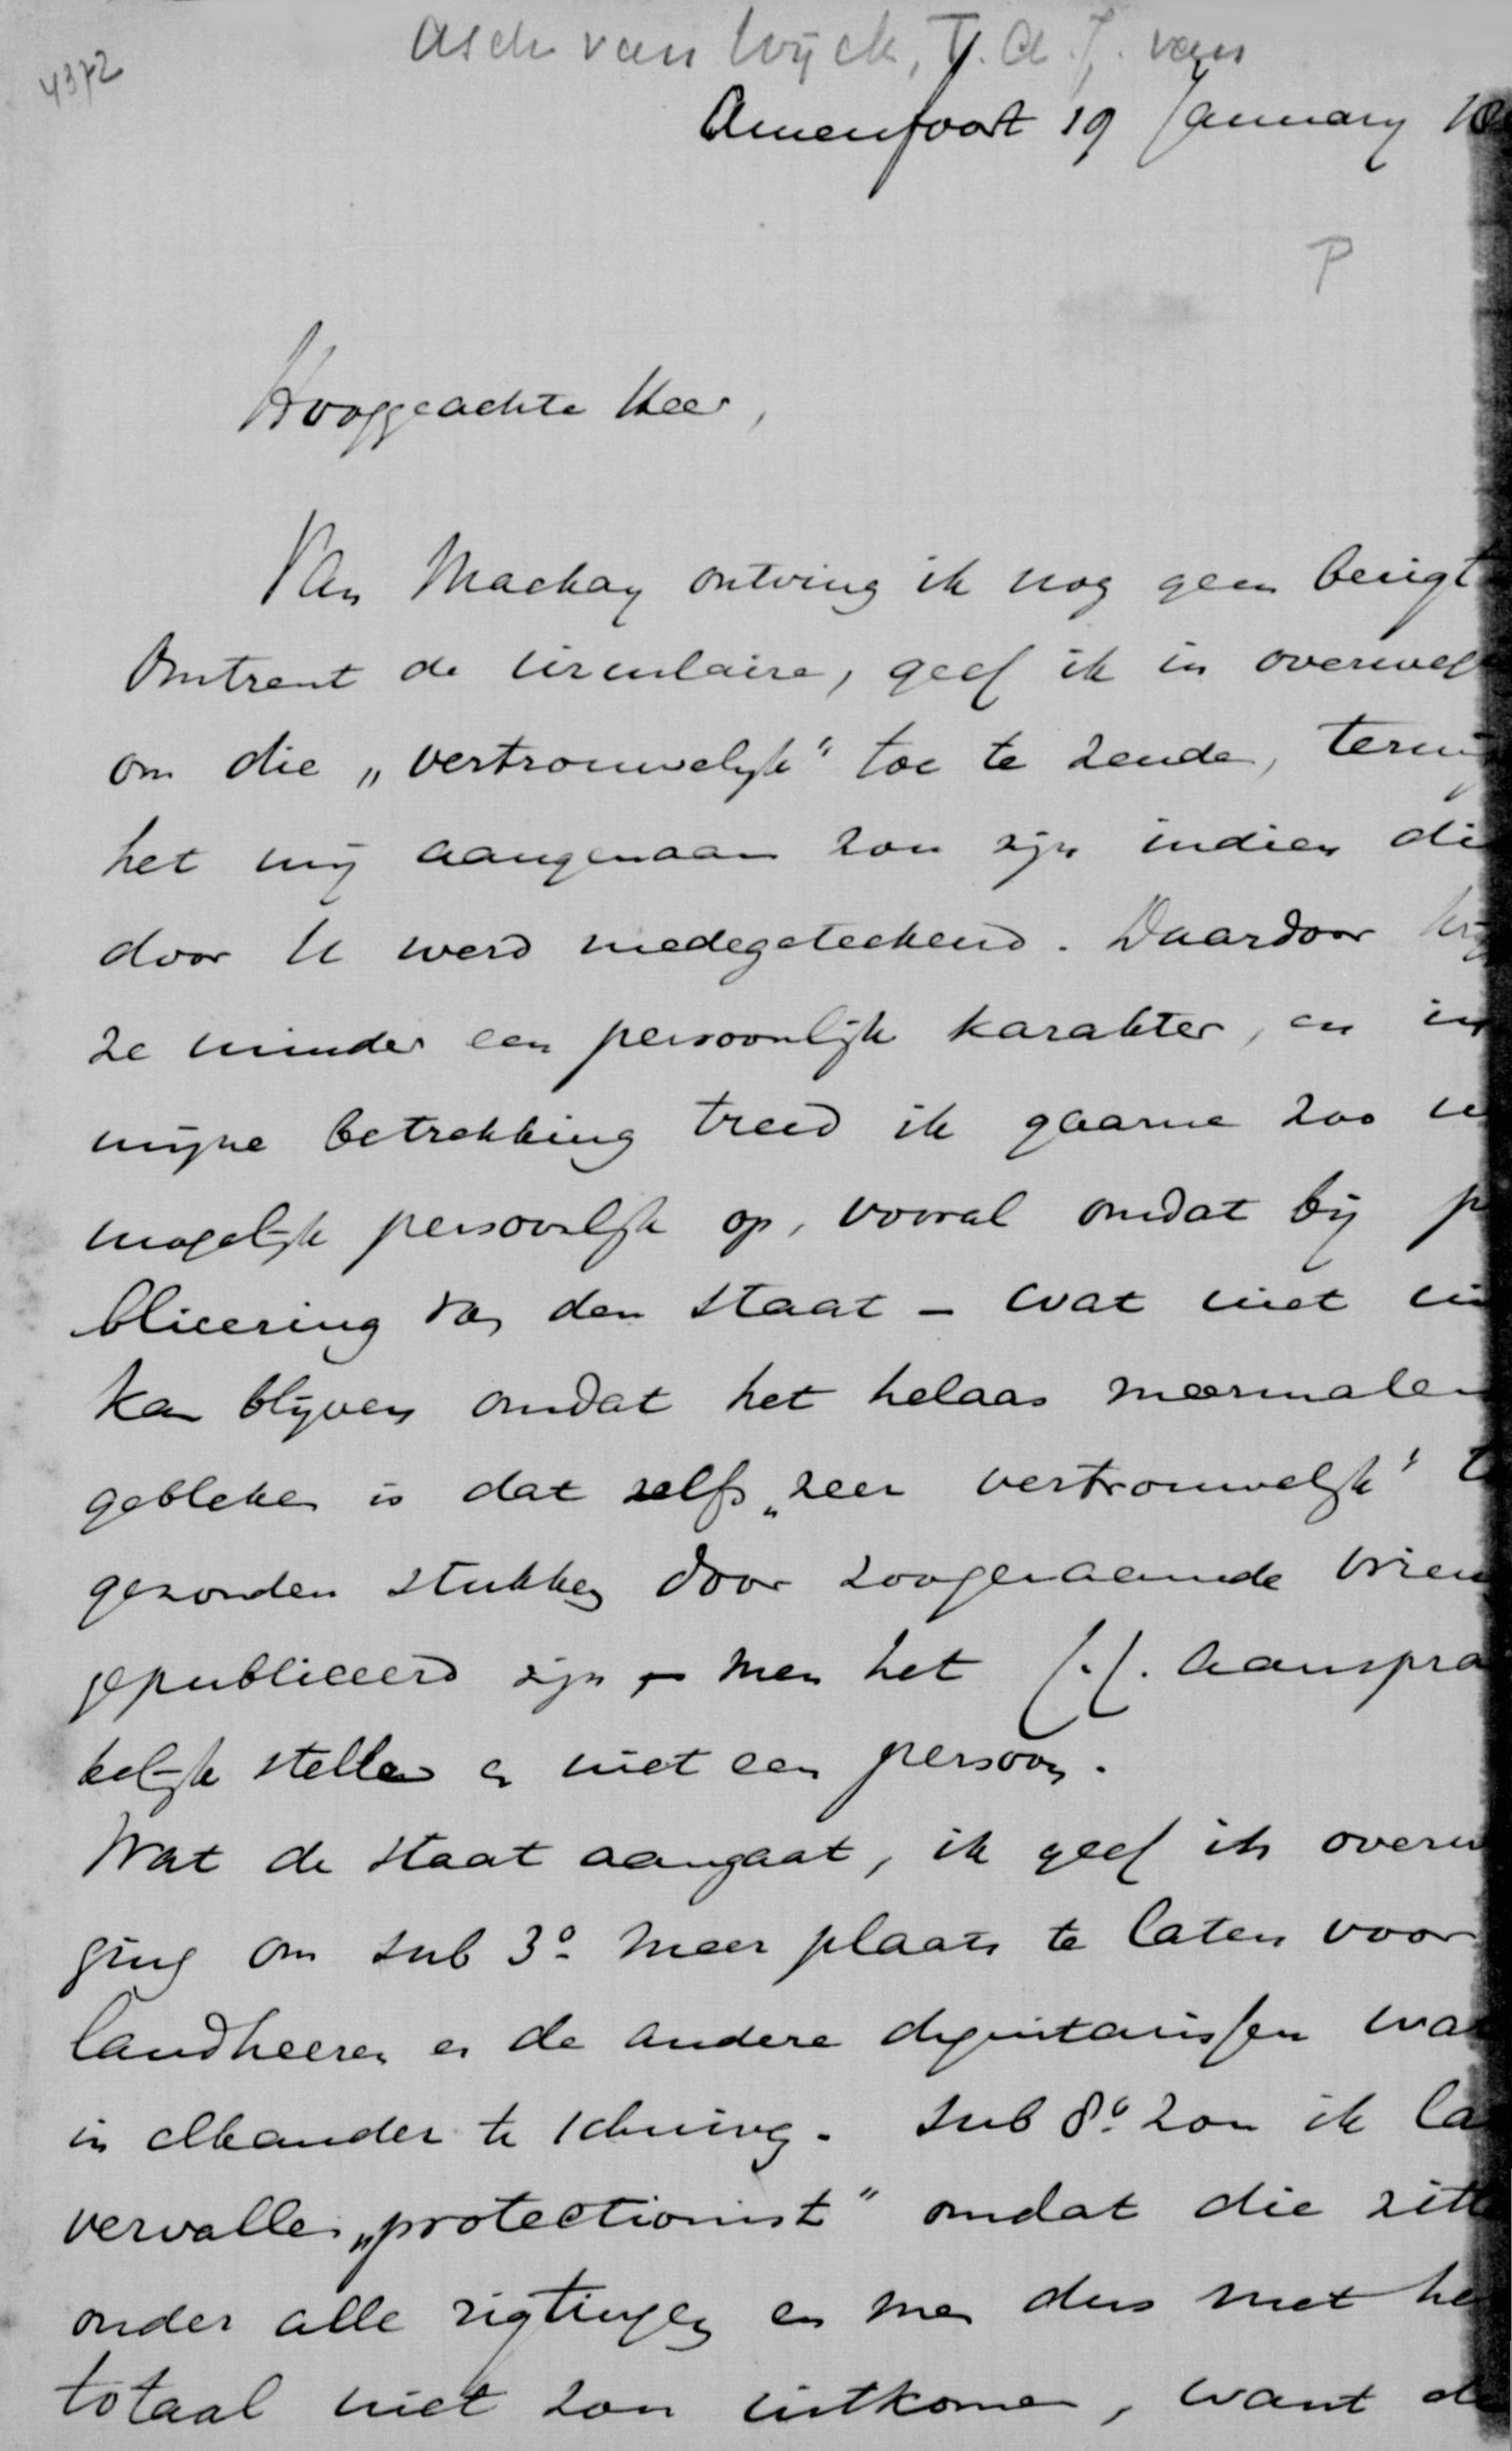 Asch van Wijck, T. A. J. van
4372
Amersfoort 19 January 18
P
Hooggeachte Heer,
Van Mackay ontving ik nog geen berigt
Omtrent de circulaire, geef ik in overweg
om die „vertrouwelijk" toe te zenden, terwij
het mij aangenaam zou zijn indien di
door U werd medegeteekend. Daardoor krij
ze minder een persoonlijk karakter, en in
mijne betrekking treed ik gaarne zoo
mogelijk persoonlijk op, vooral omdat bij p
blicering van den staat – wat niet
kan blijven omdat het helaas meermalen
gebleken is dat zelfs „zeer vertrouwelijk" t
gezonden stukken door zoogenaamde vrien
gepubliceerd zijn – men het C.C. aanspra
kelijk stelle en niet een persoon.
Wat de staat aangaat, ik geef in overw
ging om sub 3o meer plaats te laten voor
landheeren en de andere dignitarissen wat
in elkander te schuiven. Sub 8o zou ik la
vervallen „protectionist" omdat die zitt
onder alle rigtingen en men dus met he
totaal niet zou uitkomen, want d